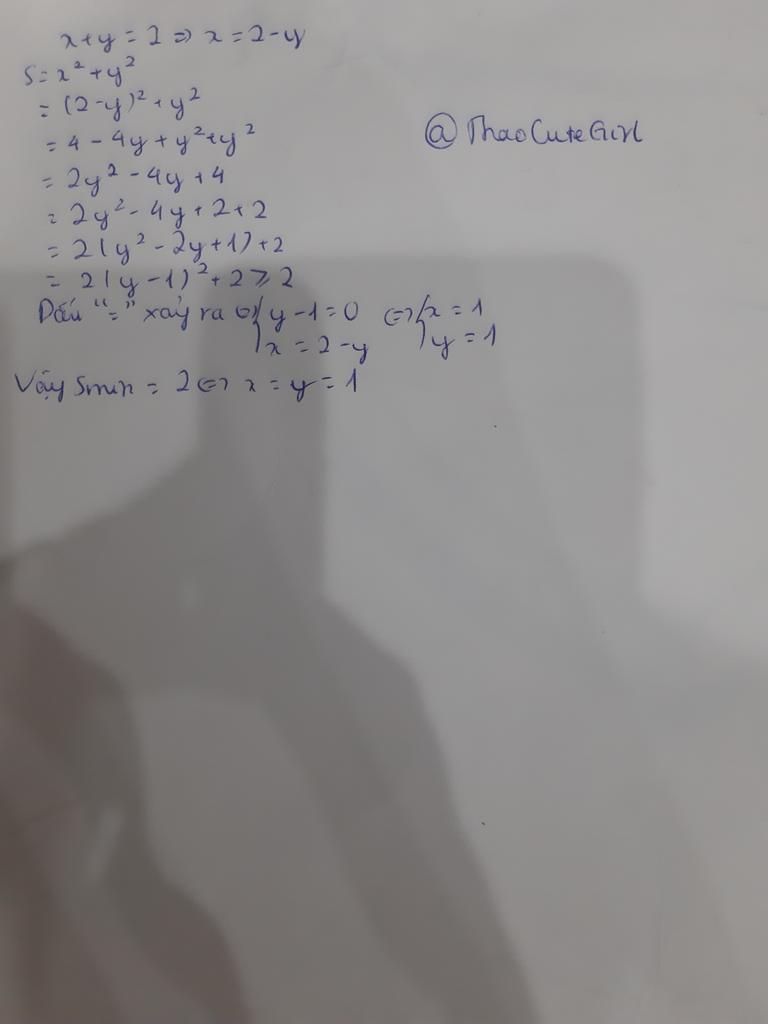 x+y = 2 => x = 2-y
S = x² + y²
= (2-y)² + y²
= 4 - 4y + y² + y²
@ThaoCuteGirl
= 2y² - 4y + 4
= 2y² - 4y + 2 + 2
= 2(y² - 2y + 1) + 2
= 2(y - 1)² + 2 ≥ 2
Dấu "=" xảy ra <=> { y - 1 = 0 <=> { x = 1
x = 2 - y y = 1
Vậy Smin = 2 <=> x = y = 1